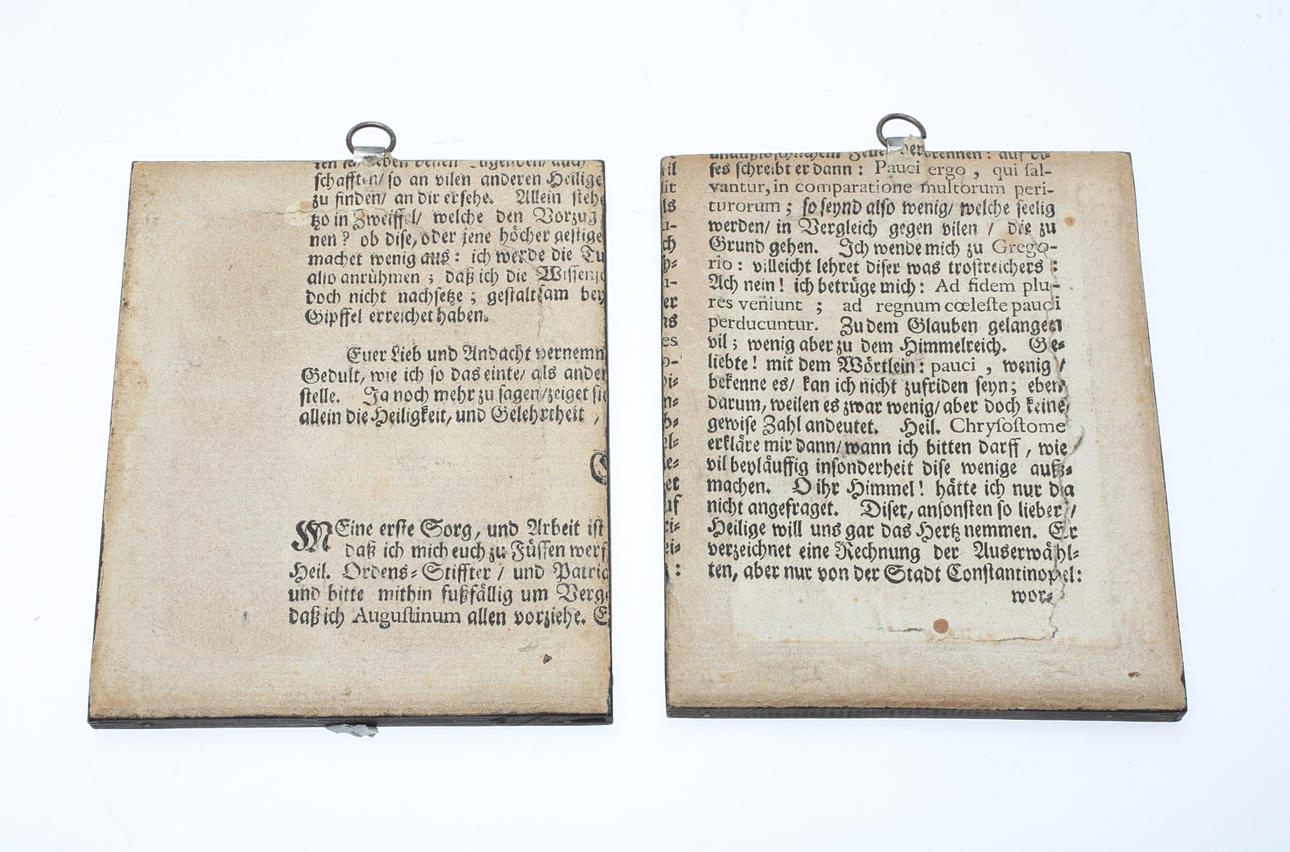 schafften/ so an vilen anderen Heilige
zu finden/ an dir ersehe. Allein stehe
tzo in Zweiffel/ welche den Vorzug
nen? ob dise, oder jene höcher gestige
machet wenig aus: ich werde die Tu
also anrühmen; daß ich die Wissens
doch nicht nachsetze; gestaltsam bey
Gipffel erreichet haben.
Euer Lieb und Andacht vernemm
Gedult, wie ich so das einte/ als ander
stelle. Ja noch mehr zu sagen/zeiget si
allein die Heiligkeit, und Gelehrtheit,
MEine erste Sorg, und Arbeit ist
daß ich mich euch zu Füssen werf
Heil. Ordens-Stiffter/ und Patria
und bitte mithin fußfällig um Verg
daß ich Augustinum allen vorziehe. E
unauslöschlichem Feuer verbrennen: auf di-
ses schreibt er dann: Pauci ergo, qui sal-
vantur, in comparatione multorum peri-
turorum; so seynd also wenig/ welche seelig
werden/ in Vergleich gegen vilen / die zu
Grund gehen. Ich wende mich zu Grego-
rio: villeicht lehret diser was trostreichers:
Ach nein! ich betrüge mich: Ad fidem plu-
res veniunt; ad regnum cœleste pauci
perducuntur. Zu dem Glauben gelangen
vil; wenig aber zu dem Himmelreich. Ge-
liebte! mit dem Wörtlein: pauci, wenig/
bekenne es/ kan ich nicht zufriden seyn; eben
darum, weilen es zwar wenig/ aber doch keine
gewise Zahl andeutet. Heil. Chrysostome
erkläre mir dann/ wann ich bitten darff, wie
vil beyläuffig insonderheit dise wenige auß-
machen. O ihr Himmel! hätte ich nur da
nicht angefraget. Diser, ansonsten so lieber/
Heilige will uns gar das Hertz nemmen. Er
verzeichnet eine Rechnung der Auserwähl-
ten, aber nur von der Stadt Constantinopel:
wor-